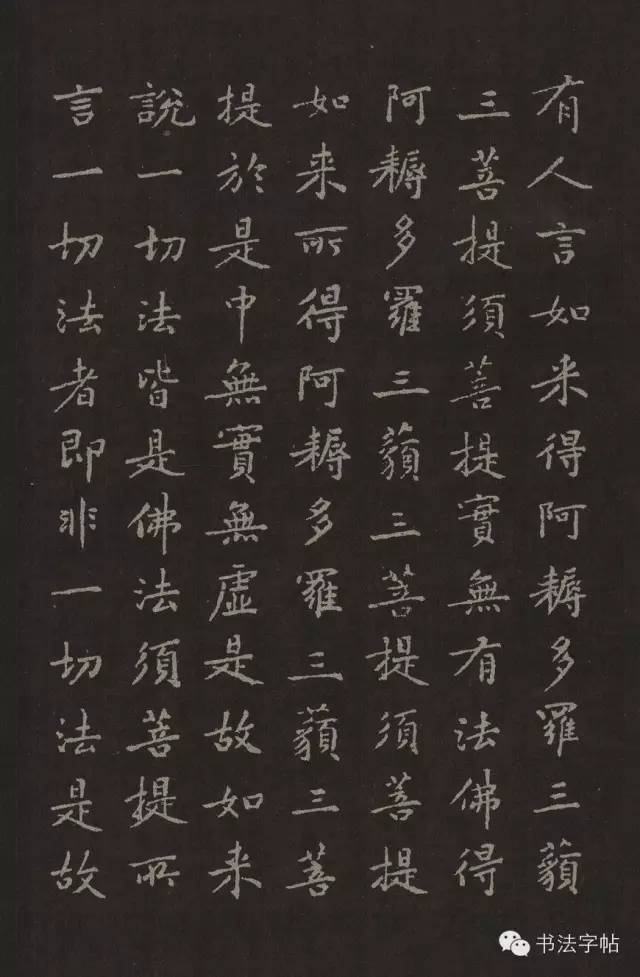 有人言如来得阿耨多羅三藐
三菩提須菩提實無有法佛得
阿耨多羅三藐三菩提須菩提
如来所得阿耨多羅三藐三菩
提於是中無實無虛是故如来
說一切法皆是佛法須菩提所
言一切法者即非一切法是故
书法字帖